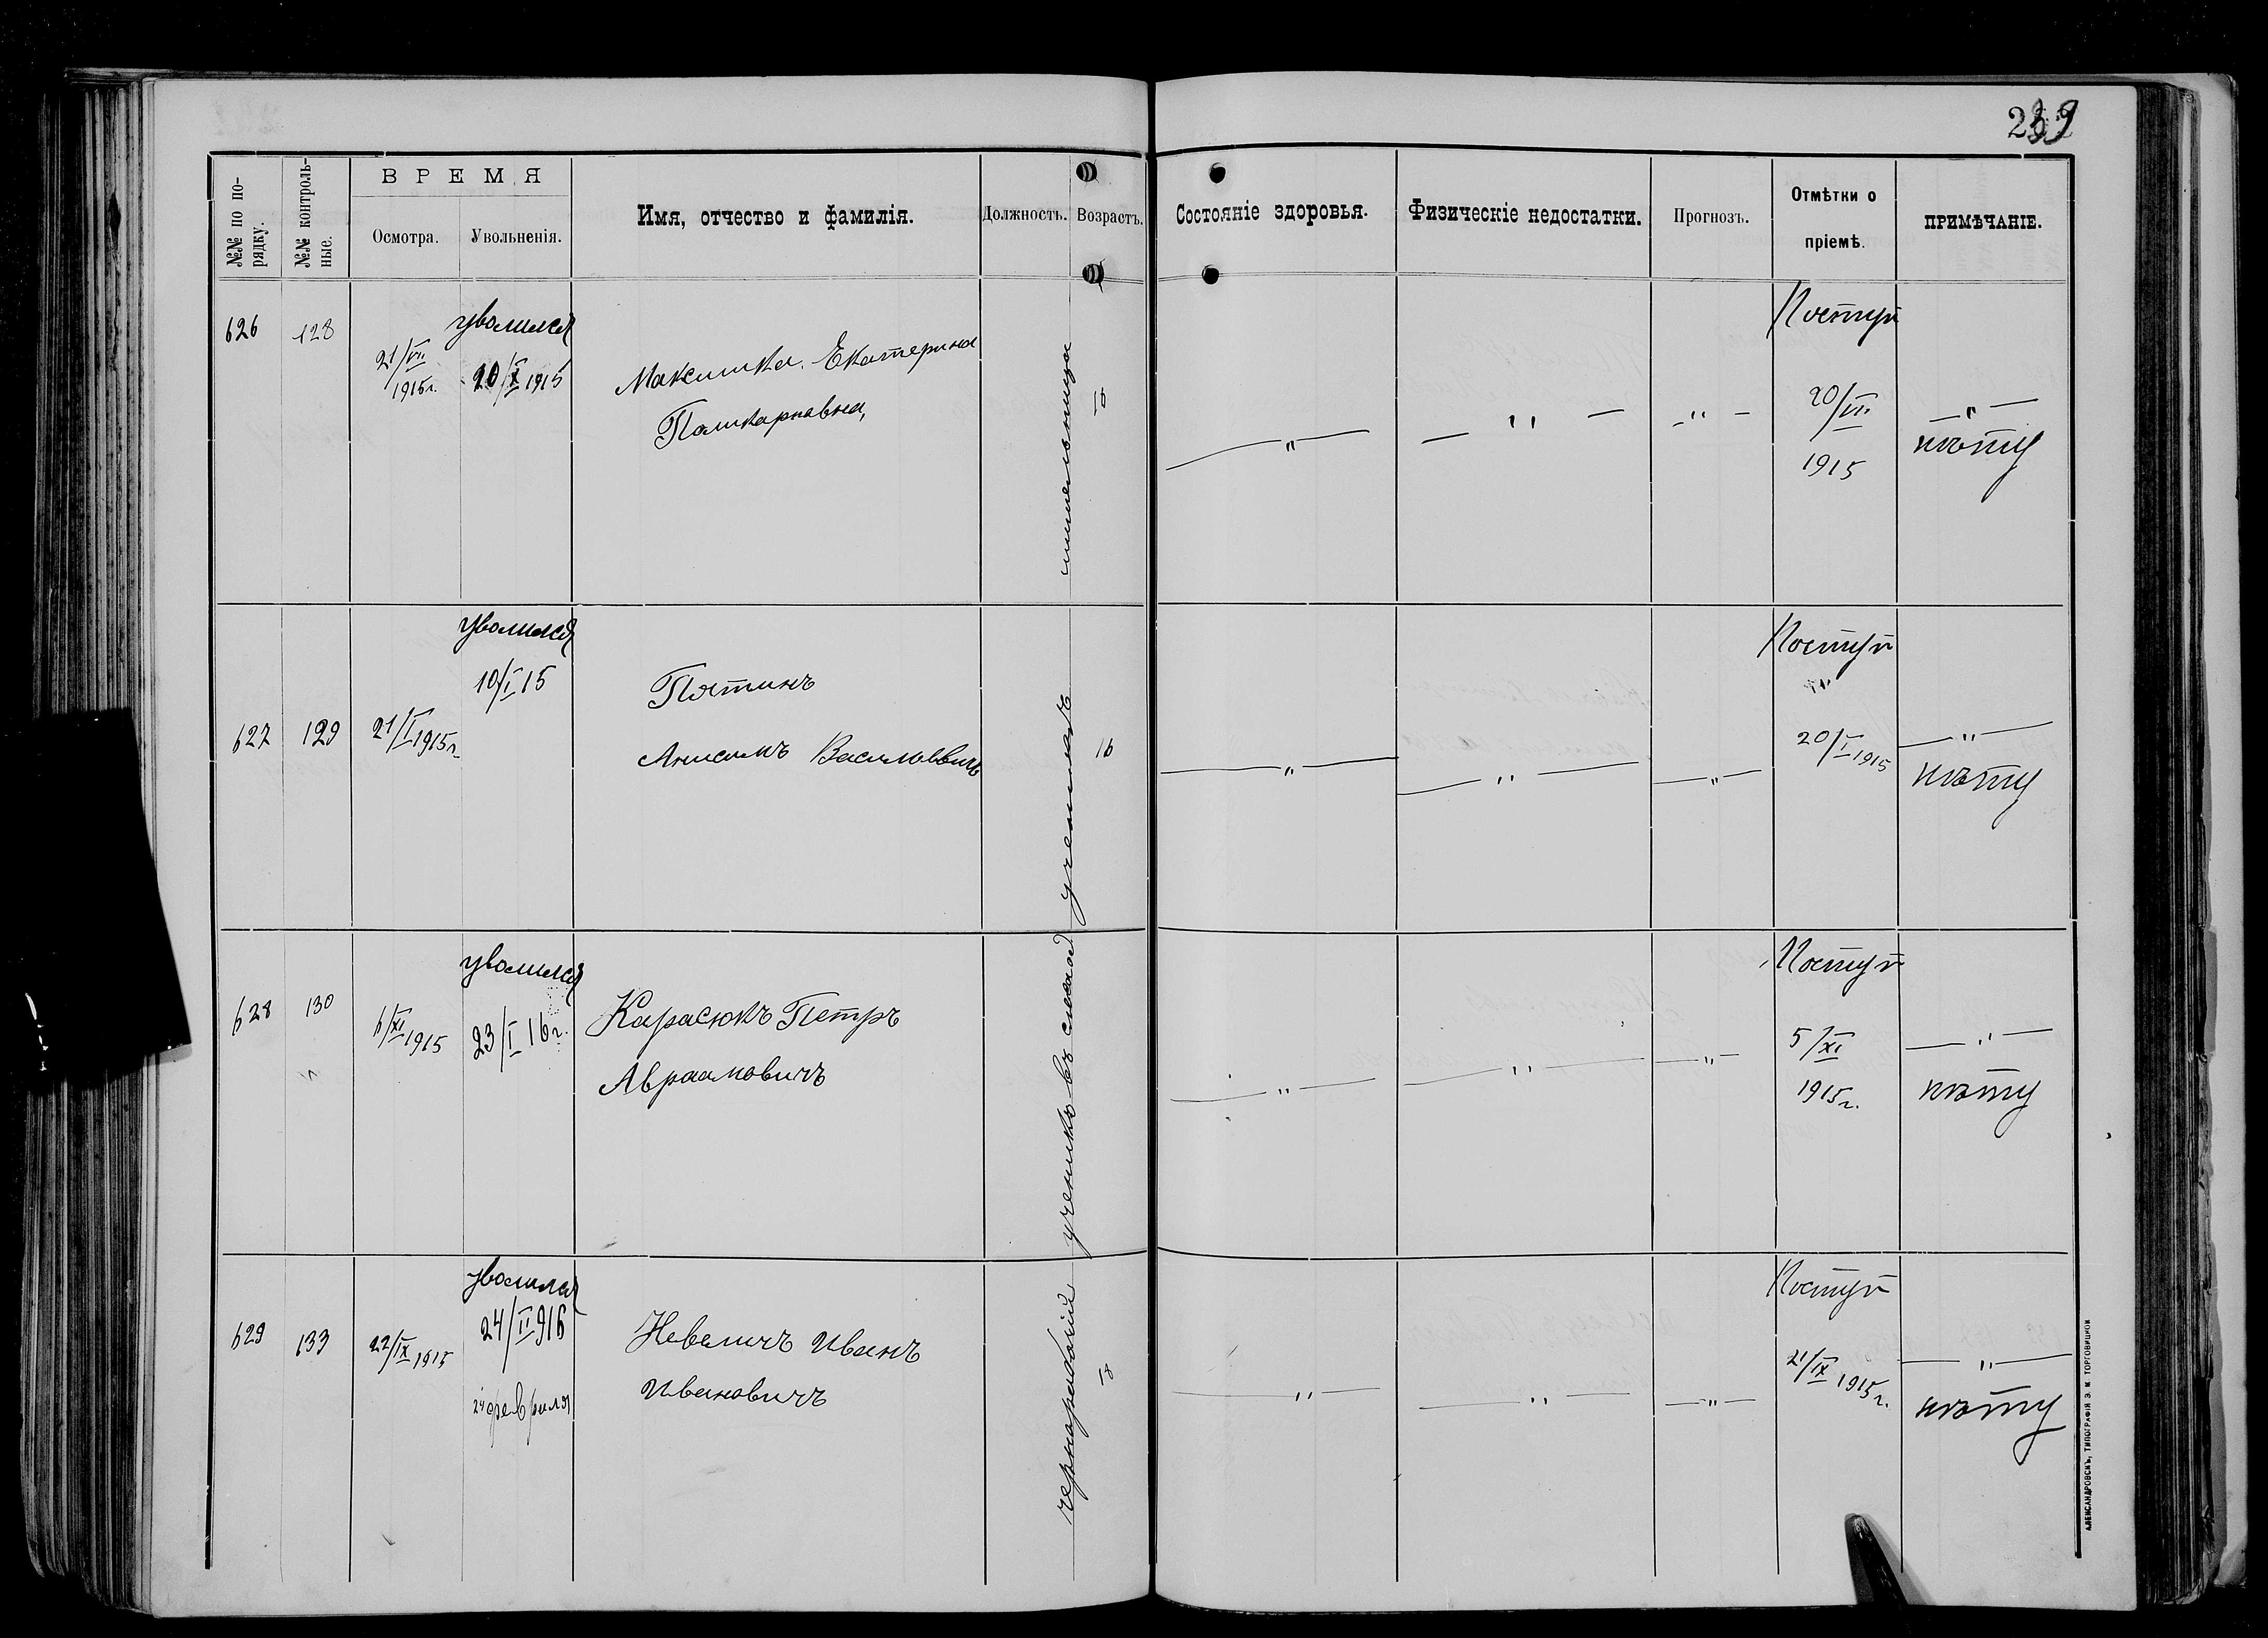 239
№№ по порядку.
№№ контрольные.
ВРЕМЯ
Осмотра.
Увольненія.
Имя, отчество и фамилія.
Должность.
Возрастъ.
Состояніе здоровья.
Физическіе недостатки.
Прогнозъ.
Отмѣтки о
пріемѣ.
ПРИМѢЧАНІЕ.
626
128
21/VII
1915г.
уволился
20/X 1915
Максимка Екатерина
Поликарповна,
шпильщица
16
— " —
— " —
— " —
Поступ
20/VII
1915
— " —
нѣту
627
129
21/I 1915г.
уволился
10/I 15
Пятинъ
Анисимъ Васильевичъ
16
— " —
— " —
— " —
Поступ
20/I 1915
— " —
нѣту
628
130
6/XI 1915
уволился
23/I 16г.
Карасюкъ Петръ
Авраамовичъ
ученикъ въ слесар
— " —
— " —
— " —
Поступ
5/XI
1915г.
— " —
нѣту
629
133
22/IX 1915
уволился
24/II 916
24 февраля
Невеличъ Иванъ
Ивановичъ
чернорабочій
18
— " —
— " —
— " —
Поступ
21/IX 1915г.
— " —
нѣту
АЛЕКСАНДРОВСКЪ, ТИПОГРАФІЯ Э. М. ТОРГОВИЦКОЙ